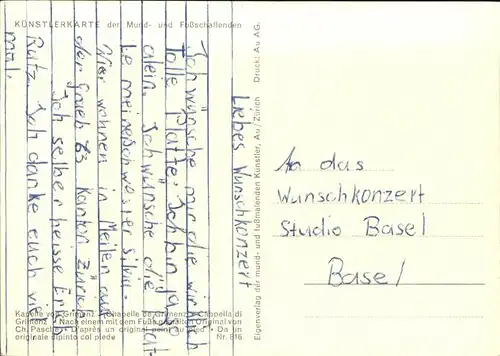 KÜNSTLERKARTE der Mund- und Fußschaffenden
Liebes Wunschkonzert
Ich wünsche mir die wirklich
tolle Platte: Ich bin ja so
alein. Ich wünsche die Plat-
te meine Schwester Silvia.
Wir wohnen in Meilen auf
der 63 Kanton Zürich
Ich selber heisse Erich
Rutz. Ich danke euch viel
mal.
An das
Wunschkonzert
Studio Basel
Basel
Eigenverlag der mund- und fußmalenden Künstler, Au/Zürich Druck: Au AG.
Kapelle von Grimenz • Chapelle de Grimenz • Cappella di
Grimenz • Nach einem mit dem Fuß gemalten Original von
Ch. Pasche • D'après un original peint du pied • Da un
originale dipinto col piede Nr. 816